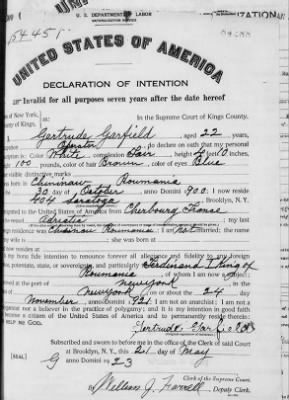 U. S. DEPARTMENT LABOR
NATURALIZATION SERVICE
UNITED STATES OF AMERICA
DECLARATION OF INTENTION
Invalid for all purposes seven years after the date hereof
of New York,
In the Supreme Court of Kings County.
ty of Kings,
Gertrude Garfield aged 22 years,
Operator, do declare on oath that my personal
is: Color White, complexion Fair, height 4 feet 10 inches,
100 pounds, color of hair Brown, color of eyes Blue
visible distinctive marks
in Chisinau Roumania
30 day of October, anno Domini 1900; I now reside
404 Saratoga, Brooklyn, N.Y.
to the United States of America from Cherbourg France
Adriatic; my last
residence was Chisinau Roumania; I am not married; the name
wife is; she was born at
now resides at
bona fide intention to renounce forever all allegiance and fidelity to any foreign
potentate, state, or sovereignty, and particularly to Ferdinand I King of
Roumania, of whom I am now a subject;
at the port of New York, in the
New York, on or about the 24 day
November, anno Domini 1921; I am not an anarchist; I am not a
nor a believer in the practice of polygamy; and it is my intention in good faith
become a citizen of the United States of America and to permanently reside therein:
HELP ME GOD.
Gertrude Garfield
Subscribed and sworn to before me in the office of the Clerk of said Court
at Brooklyn, N. Y., this 21 day of May
[SEAL] anno Domini 1923
Clerk of the Supreme Court.
By William J. Farrell, Deputy Clerk.